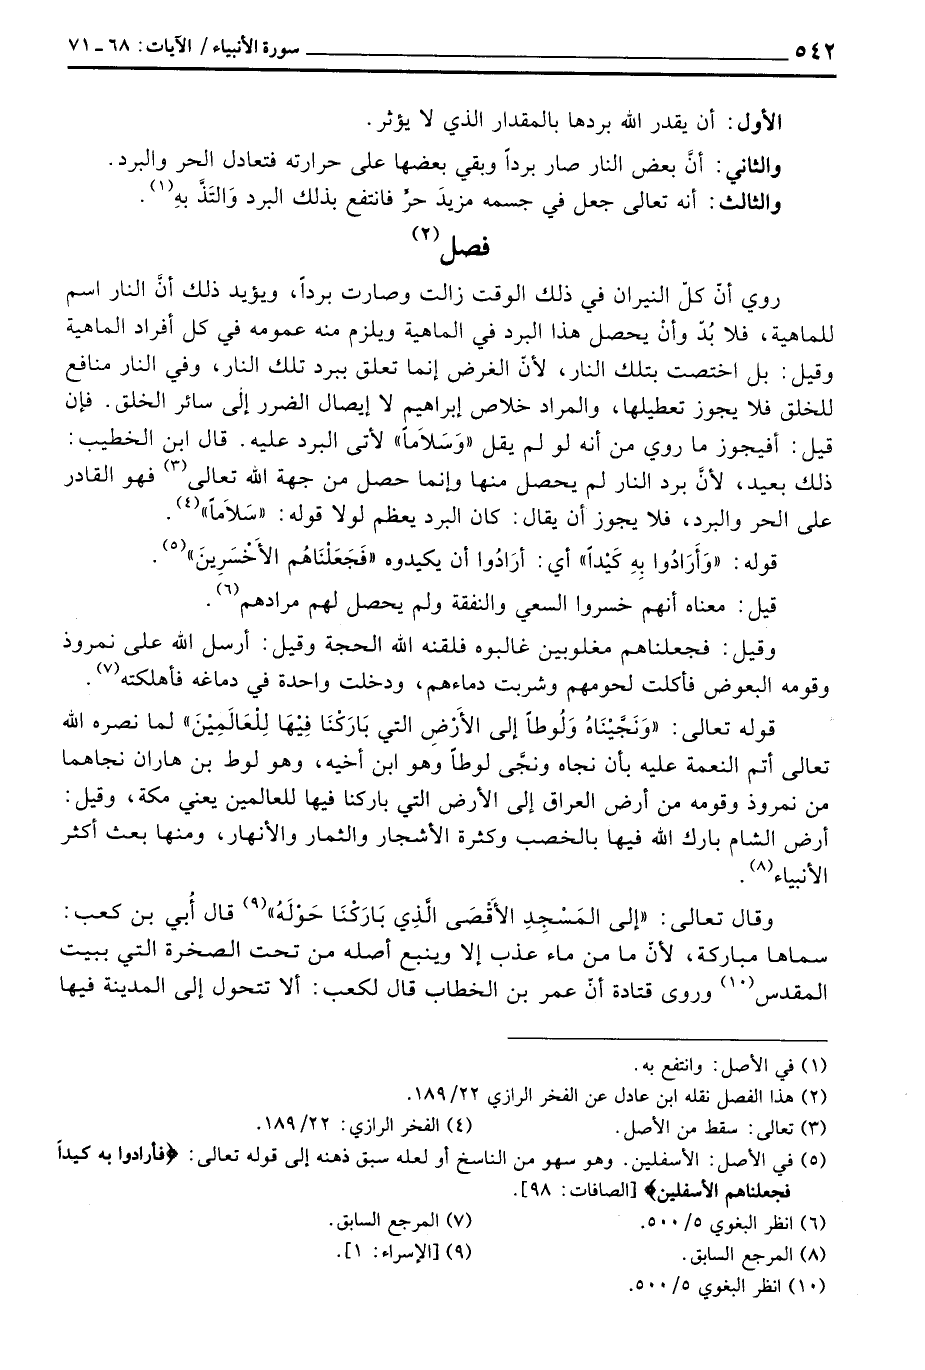 ٥٤٢ سورة الأنبياء / الآيات: ٦٨ ـ ٧١
الأول: أن يقدر الله بردها بالمقدار الذي لا يؤثر.
والثاني: أنَّ بعض النار صار برداً وبقي بعضها على حرارته فتعادل الحر والبرد.
والثالث: أنه تعالى جعل في جسمه مزيدَ حرٍّ فانتفع بذلك البرد وَالتَذَّ بهِ(١).
فصل(٢)
روي أنّ كلّ النيران في ذلك الوقت زالت وصارت برداً، ويؤيد ذلك أنَّ النار اسم
للماهية، فلا بُدّ وأنْ يحصل هذا البرد في الماهية ويلزم منه عمومه في كل أفراد الماهية
وقيل: بل اختصت بتلك النار، لأنّ الغرض إنما تعلق ببرد تلك النار، وفي النار منافع
للخلق فلا يجوز تعطيلها، والمراد خلاص إبراهيم لا إيصال الضرر إلى سائر الخلق. فإن
قيل: أفيجوز ما روي من أنه لو لم يقل «وَسَلاَماً» لأتى البرد عليه. قال ابن الخطيب:
ذلك بعيد، لأنَّ برد النار لم يحصل منها وإنما حصل من جهة الله تعالى(٣) فهو القادر
على الحر والبرد، فلا يجوز أن يقال: كان البرد يعظم لولا قوله: «سَلاَماً»(٤).
قوله: «وَأَرَادُوا بِهِ كَيْداً» أي: أرَادُوا أن يكيدوه «فَجَعَلْنَاهُم الأَخْسَرِينَ»(٥).
قيل: معناه أنهم خسروا السعي والنفقة ولم يحصل لهم مرادهم(٦).
وقيل: فجعلناهم مغلوبين غالبوه فلقنه الله الحجة وقيل: أرسل الله على نمروذ
وقومه البعوض فأكلت لحومهم وشربت دماءهم، ودخلت واحدة في دماغه فأهلكته(٧).
قوله تعالى: «وَنَجَّيْنَاهُ وَلُوطاً إلى الأَرْضِ التي بَارَكْنَا فِيْهَا لِلْعَالَمِيْنَ» لما نصره الله
تعالى أتم النعمة عليه بأن نجاه ونجَّى لوطاً وهو ابن أخيه، وهو لوط بن هاران نجاهما
من نمروذ وقومه من أرض العراق إلى الأرض التي باركنا فيها للعالمين يعني مكة، وقيل:
أرض الشام بارك الله فيها بالخصب وكثرة الأشجار والثمار والأنهار، ومنها بعث أكثر
الأنبياء(٨).
وقال تعالى: «إلى المَسْجِدِ الأَقْصَى الَّذِي بَارَكْنَا حَوْلَهُ»(٩) قال أُبي بن كعب:
سماها مباركة، لأنّ ما من ماء عذب إلا وينبع أصله من تحت الصخرة التي ببيت
المقدس(١٠) وروى قتادة أنّ عمر بن الخطاب قال لكعب: ألا تتحول إلى المدينة فيها
(١) في الأصل: وانتفع به.
(٢) هذا الفصل نقله ابن عادل عن الفخر الرازي ٢٢/ ١٨٩.
(٣) تعالى: سقط من الأصل. (٤) الفخر الرازي: ٢٢/ ١٨٩.
(٥) في الأصل: الأسفلين. وهو سهو من الناسخ أو لعله سبق ذهنه إلى قوله تعالى: ﴿فأرادوا به كيداً
فجعلناهم الأسفلين﴾ [الصافات: ٩٨].
(٦) انظر البغوي ٥/ ٥٠٠. (٧) المرجع السابق.
(٨) المرجع السابق. (٩) [الإسراء: ١].
(١٠) انظر البغوي ٥/ ٥٠٠.